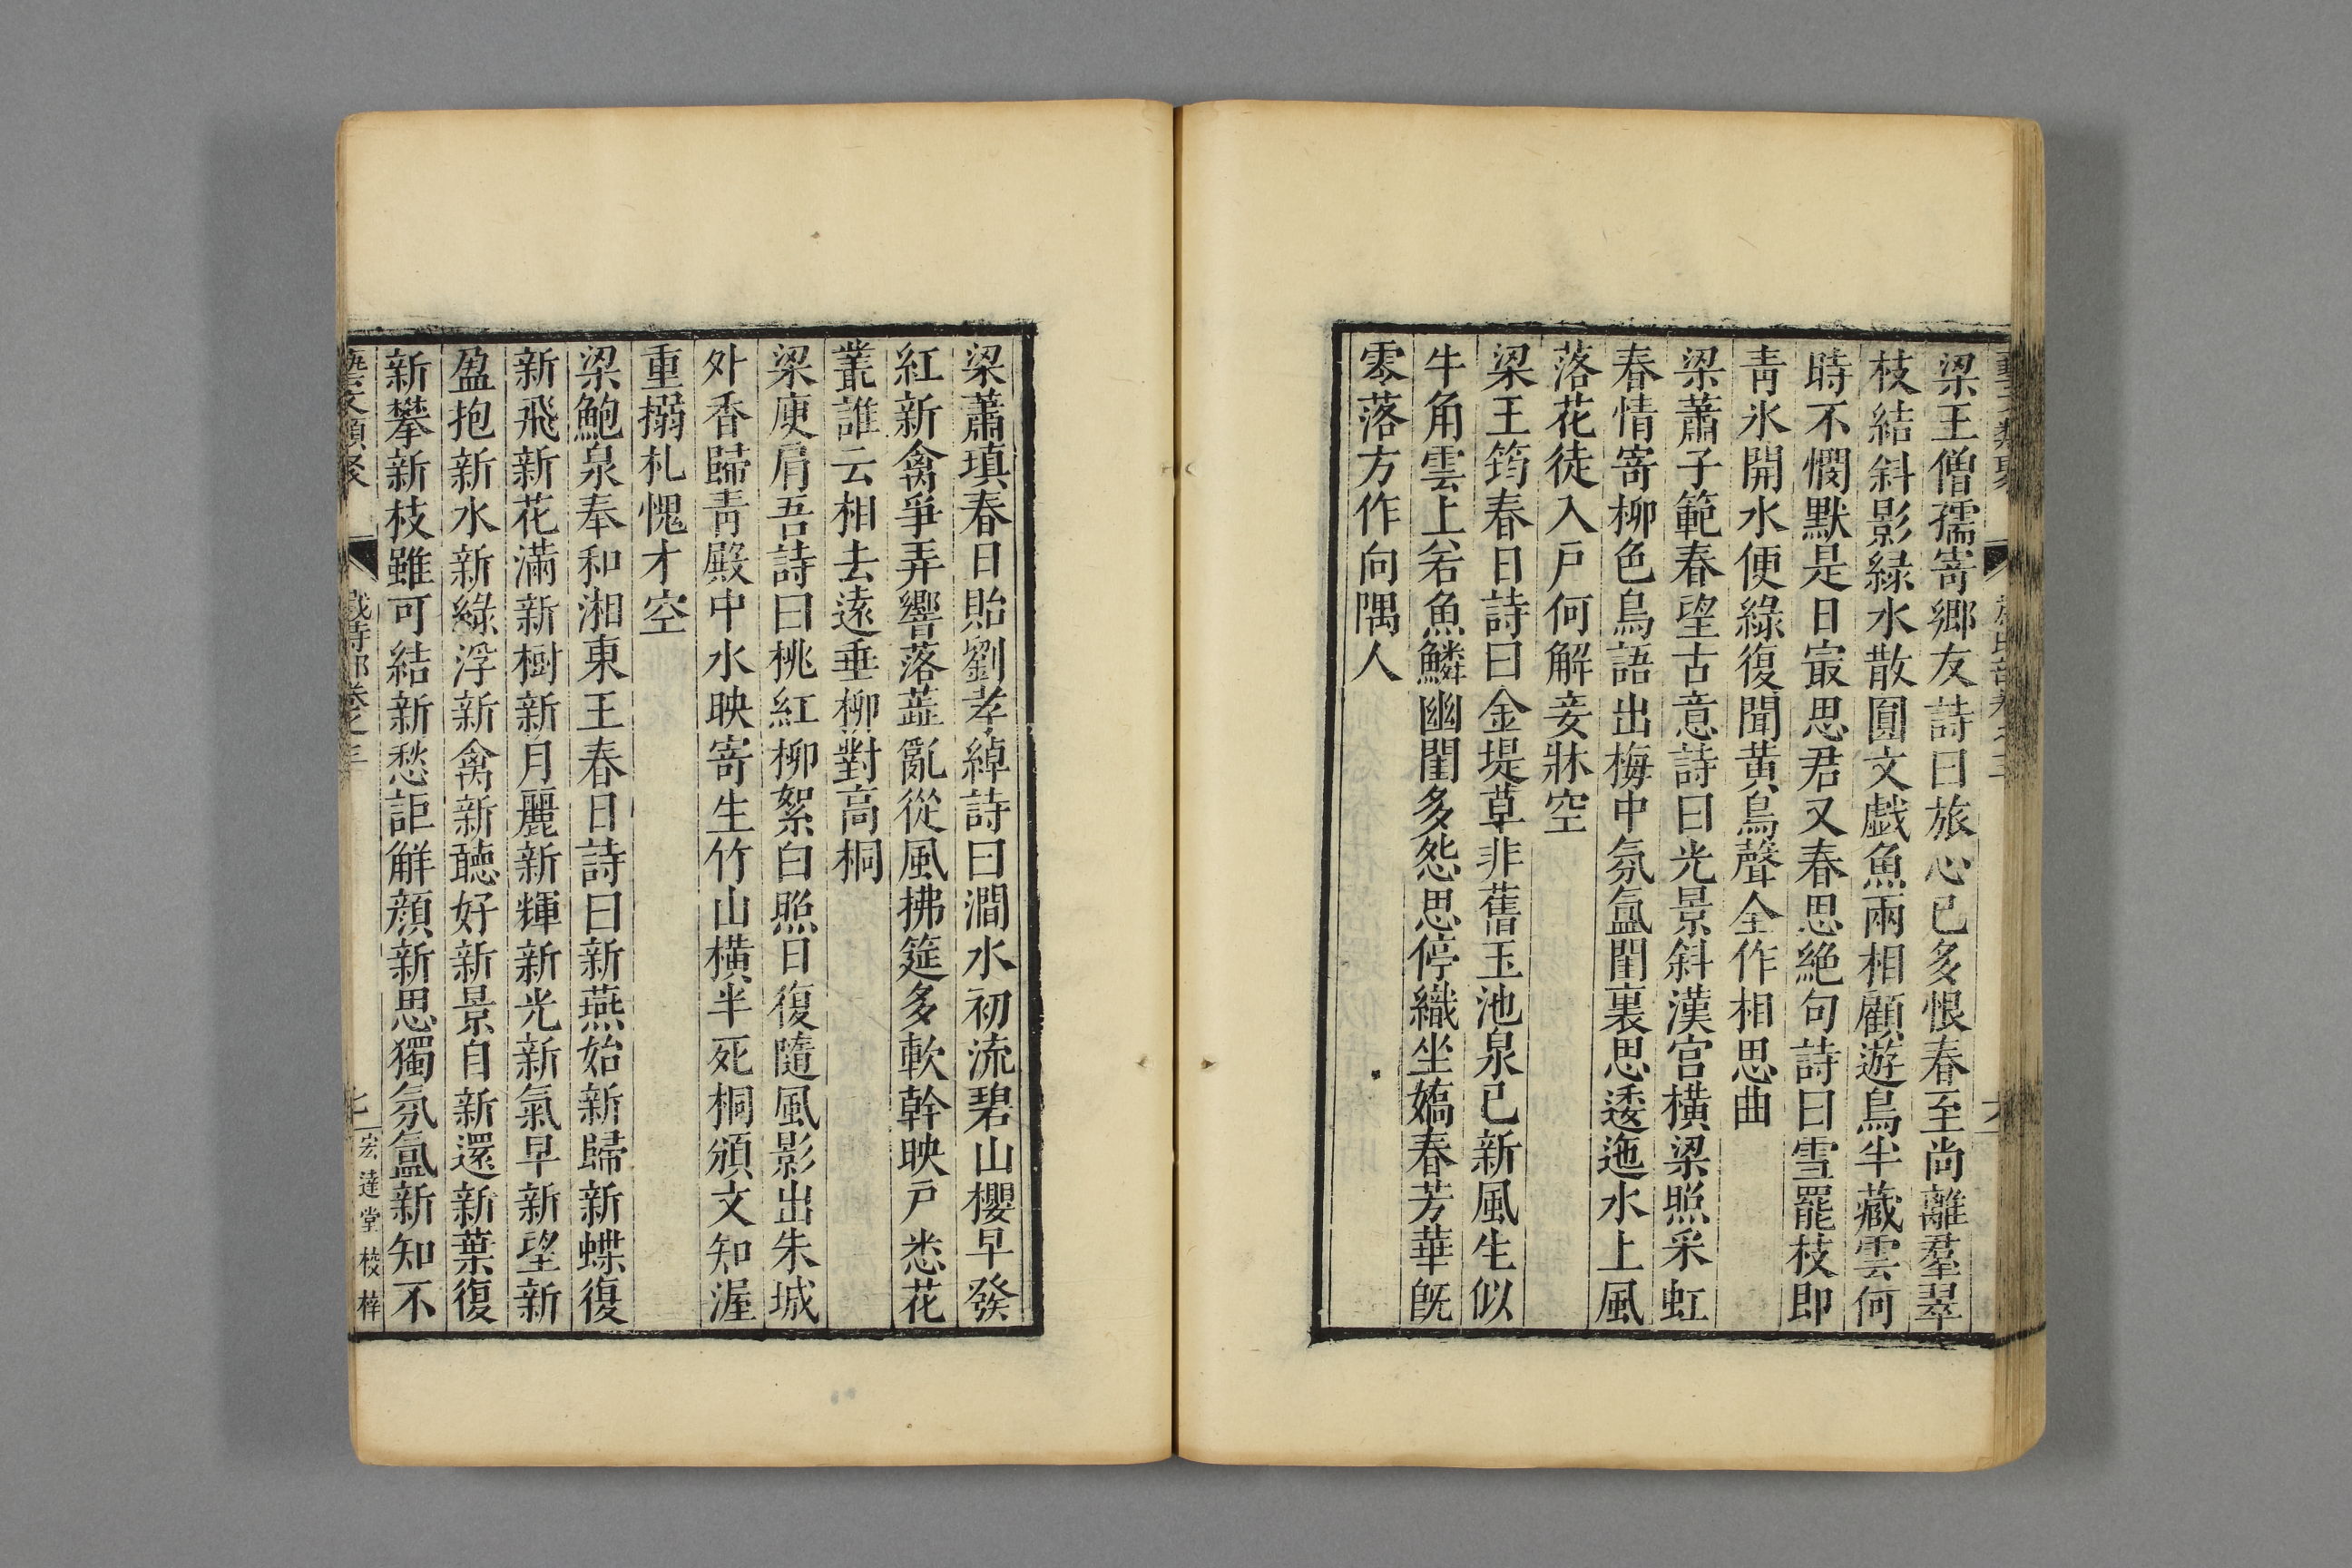 梁王僧孺寄鄉友詩曰旅心已多恨春至尚離羣翠
枝結斜影綠水散圓文戲魚兩相顧遊鳥半藏雲何
時不憫默是日㝡思君又春思絶句詩曰雪罷枝即
青氷開水便綠復聞黃鳥聲全作相思曲
梁蕭子範春望古意詩曰光景斜漢宮橫梁照采虹
春情寄柳色鳥語出梅中氛氳閨裏思逶迤水上風
落花徒入戶何解妾牀空
梁王筠春日詩曰金堤草非舊玉池泉已新風生似
牛角雲上若魚鱗幽閨多怨思停織坐嬌春芳華旣
零落方作向隅人
梁蕭瑱春日貽劉孝綽詩曰澗水初流碧山櫻早發
紅新禽爭弄響落蘂亂從風拂筵多軟幹映戶悉花
叢誰云相去遠垂柳對高桐
梁庾肩吾詩曰桃紅柳絮白照日復隨風影出朱城
外香歸青殿中水映寄生竹山橫半死桐頒文知渥
重搦札愧才空
梁鮑泉奉和湘東王春日詩曰新燕始新歸新蝶復
新飛新花滿新樹新月麗新輝新光新氣早新望新
盈抱新水新綠浮新禽新聽好新景自新還新葉復
新攀新枝雖可結新愁詎解顏新思獨氛氳新知不
藝文類聚 歲時部卷之三 七 宏達堂校梓